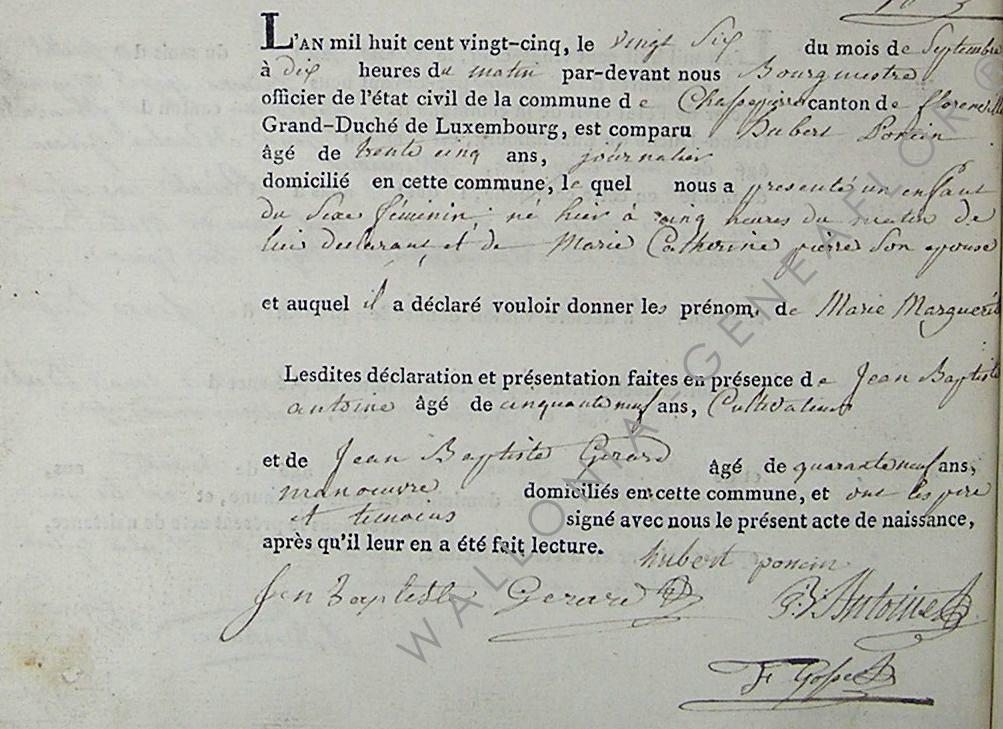 L'AN mil huit cent vingt-cinq, le vingt Six du mois de Septembre
à dix heures du matin par-devant nous Bourgmestre
officier de l'état civil de la commune de Chassepierre canton de florenville
Grand-Duché de Luxembourg, est comparu hubert Poncin
âgé de trente cinq ans, journalier
domicilié en cette commune, le quel nous a presenté un enfant
du Sexe féminin né hier à cinq heures du matin de
lui declarant et de Marie Catherine pierre Son epouse
et auquel il a déclaré vouloir donner les prénom, de Marie Marguerite
Lesdites déclaration et présentation faites en présence de Jean Baptiste
antoine âgé de cinquante neuf ans, Cultivateur
et de Jean Baptiste Gerard âgé de quarante neuf ans,
manoeuvre domiciliés en cette commune, et ont les pere
et temoins signé avec nous le présent acte de naissance,
après qu'il leur en a été fait lecture.
hubert poncin
Jen Baptiste Gerard
J B Antoine
WALLONIA-GENEALOR